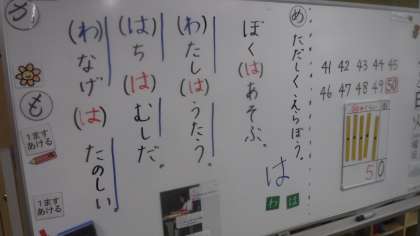 め
ただしく えらぼう。
ぼく(は)あそぶ。
は
わ は
(わ)たし(は)うたう。
(は)ち(は)むしだ。
(わ)なげ(は)たのしい。
も
1ます
あける
1ます
あける
41 42 43 44 45
46 47 48 49 50
50